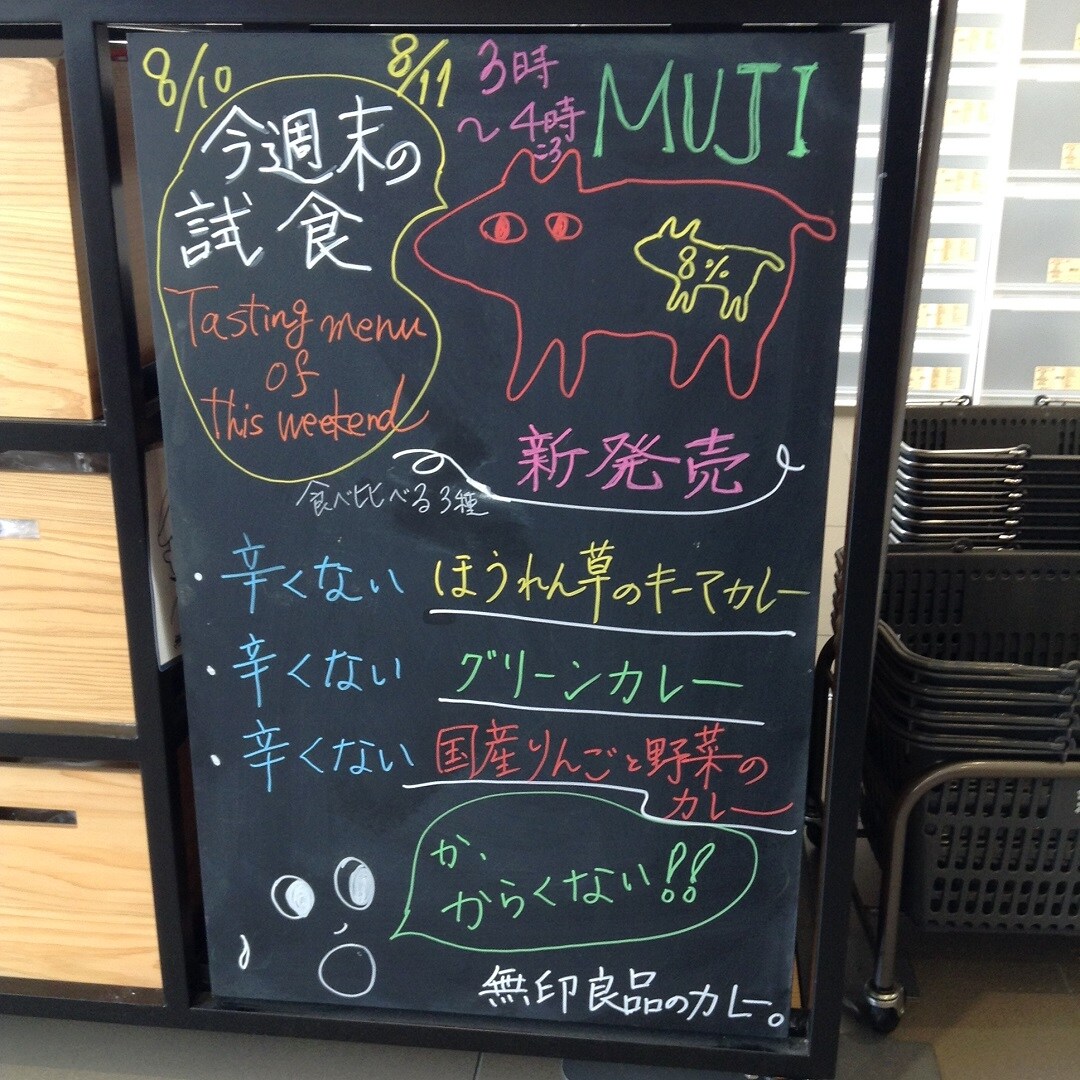 8/10
8/11
3時
～4時
ころ
MUJI
今週末の
試食
Tasting menu
of
this weekend
8%
新発売
食べ比べる3種
・辛くない ほうれん草のキーマカレー
・辛くない グリーンカレー
・辛くない 国産りんごと野菜の
カレー
か、
からくない!!
無印良品のカレー。